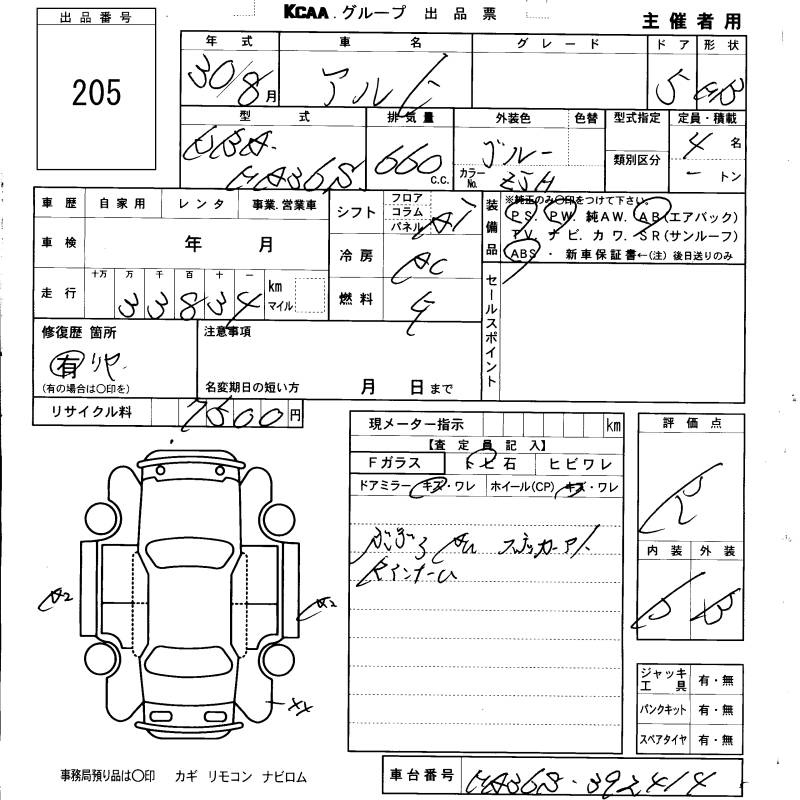 KCAA.グループ 出品票
主催者用
出品番号
205
年式 車名 グレード ドア 形状
30/8月 アルト 5 HB
型式 排気量 外装色 色替 型式指定 定員・積載
DBA-HA36S 660 C.C. ブルー 類別区分 4名
カラーNo. ZJH －トン
車歴 自家用 レンタ 事業.営業車
シフト フロア コラム パネル AT
装備品 ※純正のみ〇印をつけて下さい。
PS. PW. 純AW. AB(エアバック)
TV. ナビ. カワ. SR(サンルーフ)
ABS・新車保証書←(注)後日送りのみ
車検 年 月
冷房 AC
走行 十万 万 千 百 十 一
33834 km マイル
燃料
セールスポイント
修復歴 箇所
有 リヤ
(有の場合は〇印を)
注意事項
名変期日の短い方 月 日まで
リサイクル料 7500円
現メーター指示 km
【査定員記入】
Fガラス トビ石 ヒビワレ
ドアミラー キズ・ワレ ホイール(CP) キズ・ワレ
評価点
R
内装 外装
B
A2 A2
XX
ジャッキ工具 有・無
パンクキット 有・無
スペアタイヤ 有・無
事務局預り品は〇印 カギ リモコン ナビロム
車台番号 HA36S-392414